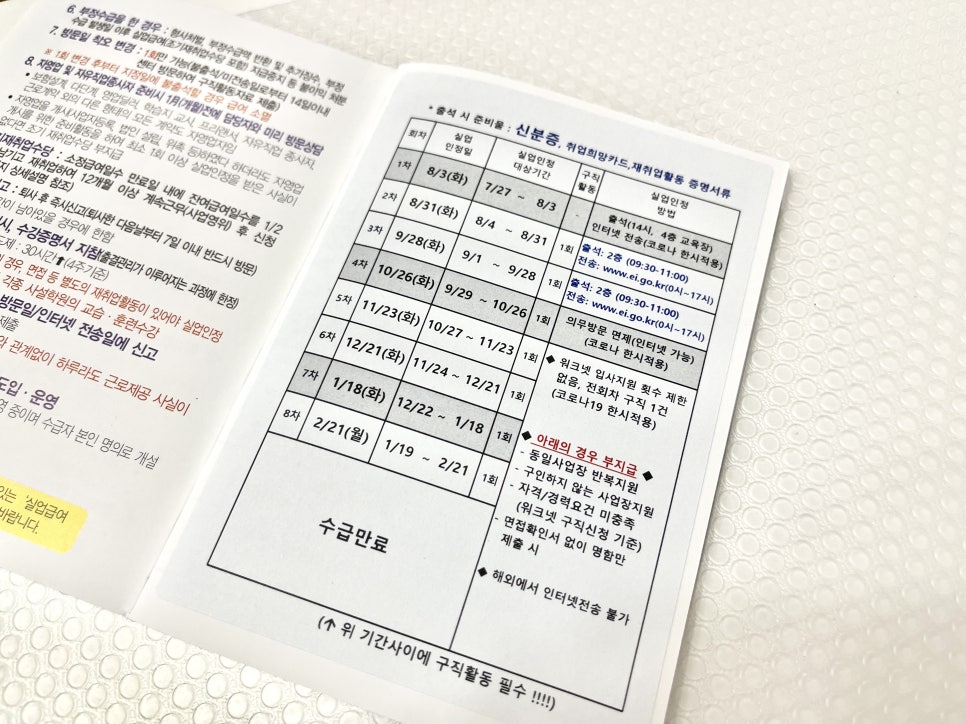 6. 부정수급을 한 경우 : 형사처벌, 부정수급액 반환 및 추가징수, 부정
수급 발생일 이후 실업급여(조기재취업수당 포함) 지급중지 등 불이익 처분
7. 방문일 착오 변경 : 1회만 가능(불출석/미전송일로부터 14일이내
센터 방문하여 구직활동자료 제출)
※ 1회 변경 후부터 지정일에 불출석할 경우 급여 소멸
8. 자영업 및 자유직업종사자 준비시 1月(개월)전에 담당자와 미리 방문상담
• 보험설계, 다단계, 영업딜러, 학습지 교사, 프리랜서, 자유직업 종사자,
근로계약 외의 다른 형태의 모든 계약도 자영업자임
• 자영업을 개시(사업자등록, 법인 설립, 위촉 등)하였다 하더라도 자영업
개시를 위한 준비활동을 하여 최소 1회 이상 실업인정을 받은 사실이
없다면 조기 재취업수당 부지급
기재취업수당 : 소정급여일수 만료일 내에 잔여급여일수를 1/2
남기고 재취업하여 12개월 이상 계속근무(사업영위) 후 신청
지 상세설명 참조)
고 : 퇴사 후 즉시신고(퇴사한 다음날부터 7일 이내 반드시 방문)
간이 남아있을 경우에 한함
시, 수강증명서 지참(출결관리가 이루어지는 과정에 한정)
도제 : 30시간↑(4주기준)
의 경우, 면접 등 별도의 재취업활동이 있어야 실업인정
각종 사설학원의 교습 · 훈련수강
방문일/인터넷 전송일에 신고
제출
와 관계없이 하루라도 근로제공 사실이
도입 · 운영
영 중이며 수급자 본인 명의로 개설
있는 '실업급여
바랍니다.
• 출석 시 준비물 : 신분증, 취업희망카드,재취업활동 증명서류
회차 실업인정일 실업인정 대상기간 구직활동 실업인정 방법
1차 8/3(화) 7/27 ~ 8/3 - 출석(14시, 4층 교육장)
인터넷 전송(코로나 한시적용)
2차 8/31(화) 8/4 ~ 8/31 1회 출석: 2층 (09:30-11:00)
전송: www.ei.go.kr(0시~17시)
3차 9/28(화) 9/1 ~ 9/28 1회 출석: 2층 (09:30-11:00)
전송: www.ei.go.kr(0시~17시)
4차 10/26(화) 9/29 ~ 10/26 1회 의무방문 면제(인터넷 가능)
(코로나 한시적용)
5차 11/23(화) 10/27 ~ 11/23 1회
6차 12/21(화) 11/24 ~ 12/21 1회
7차 1/18(화) 12/22 ~ 1/18 1회
8차 2/21(월) 1/19 ~ 2/21 1회
◆ 워크넷 입사지원 횟수 제한
없음, 전회차 구직 1건
(코로나19 한시적용)
◆ 아래의 경우 부지급 ◆
- 동일사업장 반복지원
- 구인하지 않는 사업장지원
- 자격/경력요건 미충족
(워크넷 구직신청 기준)
- 면접확인서 없이 명함만
제출 시
◆ 해외에서 인터넷전송 불가
수급만료
(↑ 위 기간사이에 구직활동 필수 !!!!)